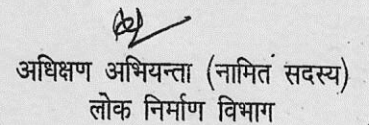 अधिक्षण अभियन्ता (नामित सदस्य)
लोक निर्माण विभाग